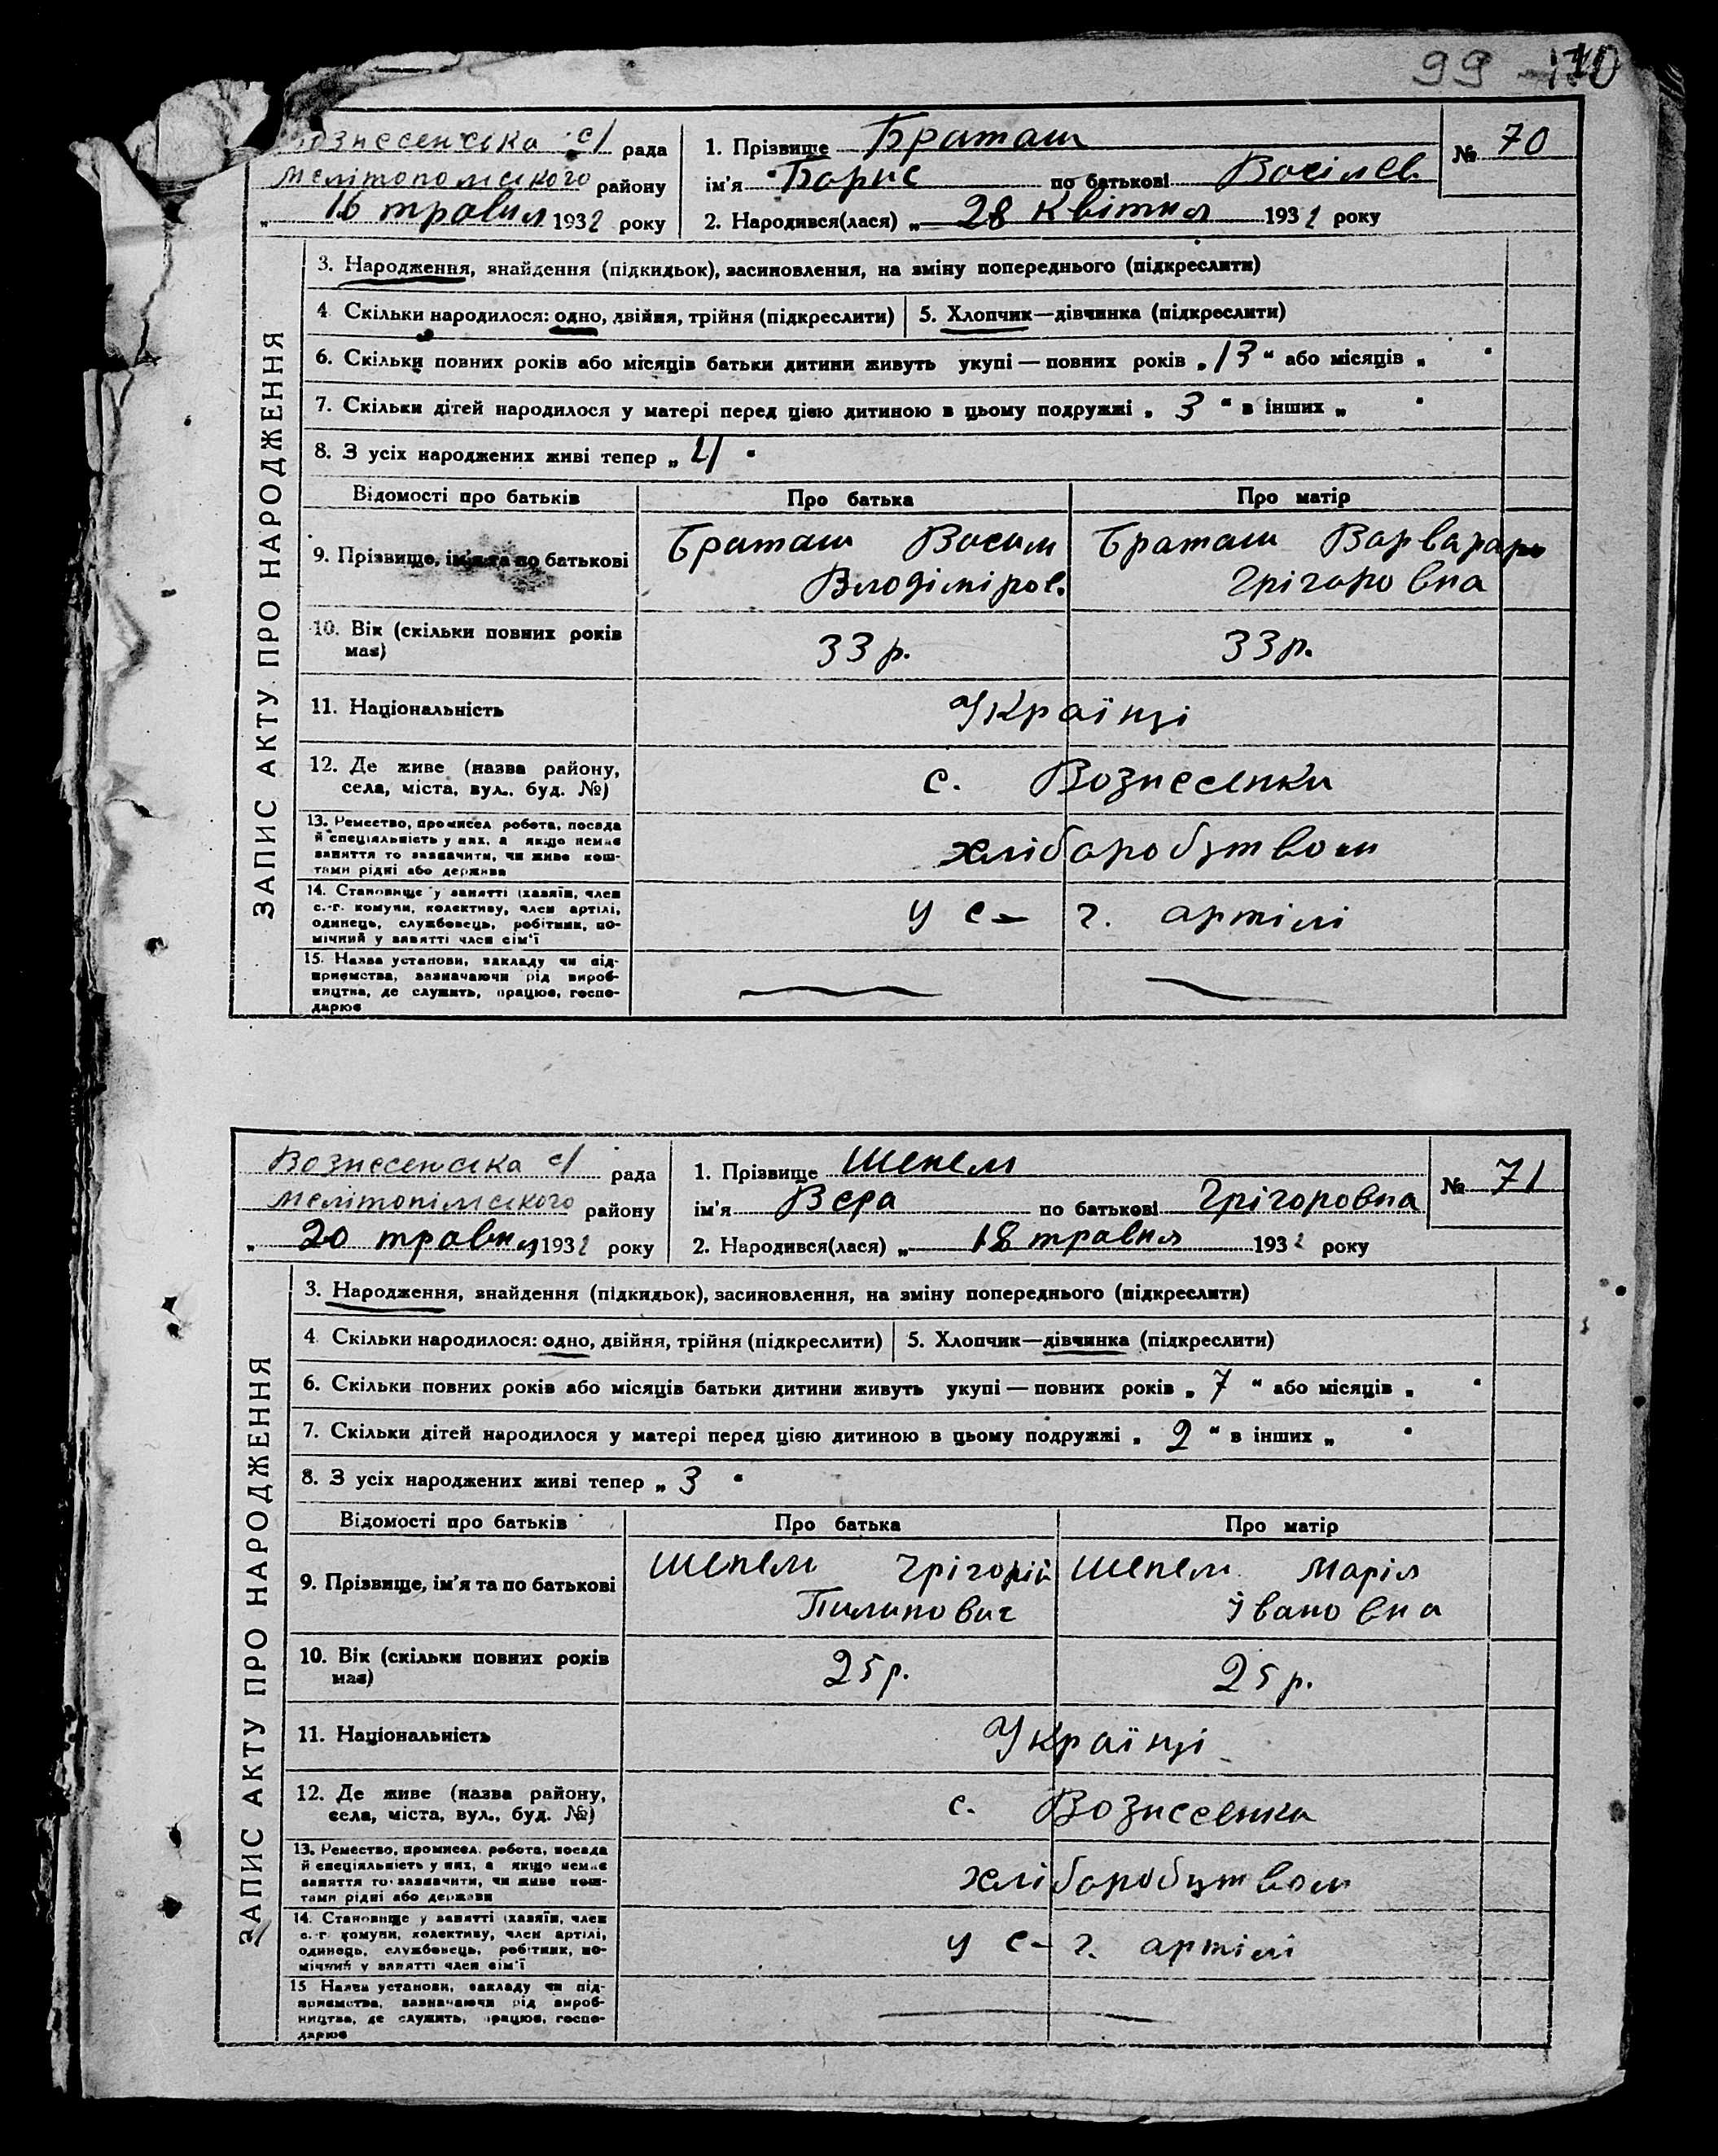 99
70
Вознесенська с/ рада
Мелітопольського району
„ 16 травня 1932 року
1. Прізвище Браташ
ім'я Борис по батькові Васілєв.
2. Народився(лася) „ 28 квітня 1932 року
№ 70
ЗАПИС АКТУ ПРО НАРОДЖЕННЯ
3. Народження, знайдення (підкидьок), засиновлення, на зміну попереднього (підкреслити)
4 Скільки народилося: одно, двійня, трійня (підкреслити) 5. Хлопчик—дівчинка (підкреслити)
6. Скільки повних років або місяців батьки дитини живуть укупі — повних років „ 13 “ або місяців „ “
7. Скільки дітей народилося у матері перед цією дитиною в цьому подружжі „ 3 “ в інших „ “
8. З усіх народжених живі тепер „ 4 “
Відомості про батьків Про батька Про матір
9. Прізвище, ім'я та по батькові
Браташ Васил
Владімиров.
Браташ Варвара
Грігоровна
10. Вік (скільки повних років має)
33 р. 33 р.
11. Національність Українці
12. Де живе (назва району,
села, міста, вул., буд. №)
с. Вознесенки
13. Ремество, промисел робота, посада
й спеціяльність у них, а якщо немає
заняття то зазначити, чи живе кош-
тами рідні або держави
хліборобством
14. Становище у занятті (хазяїн, член
с.-г. комуни, колективу, член артілі,
одинець, службовець, робітник, по-
мічний у занятті член сім'ї
у с-г. артілі
15. Назва установи, закладу чи під-
приємства, зазначаючи рід вироб-
ництва, де служить, працює, госпо-
дарює
Вознесенська с/ рада
Мелітопільського району
„ 20 травня 1932 року
1. Прізвище Шепель
ім'я Вера по батькові Грігоровна
2. Народився(лася) „ 18 травня 1932 року
№ 71
ЗАПИС АКТУ ПРО НАРОДЖЕННЯ
3. Народження, знайдення (підкидьок), засиновлення, на зміну попереднього (підкреслити)
4 Скільки народилося: одно, двійня, трійня (підкреслити) 5. Хлопчик—дівчинка (підкреслити)
6. Скільки повних років або місяців батьки дитини живуть укупі — повних років „ 7 “ або місяців „ “
7. Скільки дітей народилося у матері перед цією дитиною в цьому подружжі „ 2 “ в інших „ “
8. З усіх народжених живі тепер „ 3 “
Відомості про батьків Про батька Про матір
9. Прізвище, ім'я та по батькові
Шепель Грігорій
Пилипович
Шепель Марія
Івановна
10. Вік (скільки повних років
має)
25 р. 25 р.
11. Національність Українці
12. Де живе (назва району,
села, міста, вул., буд. №)
с. Вознесенка
13. Ремество, промисел. робота, посада
й спеціяльність у них, а якщо немає
заняття то зазначити, чи живе кош-
тами рідні або держави
хліборобством
14. Становище у занятті (хазяїн, член
с.-г комуни, колективу, член артілі,
одинець, службовець, робітник, по-
мічний у занятті член сім'ї
у с-г. артілі
15 Назва установи, закладу чи під-
приємства, зазначаючи рід вироб-
ництва, де служить, працює, госпо-
дарює